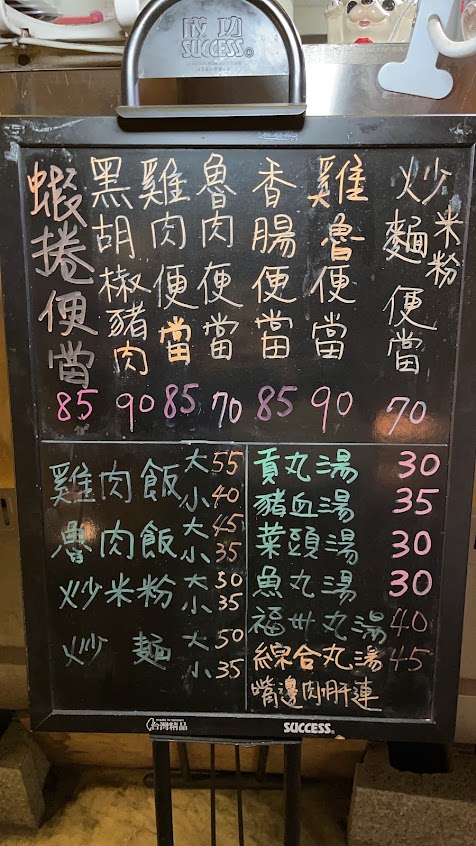 成功
SUCCESS
炒麵米粉便當 70
雞魯便當 90
香腸便當 85
魯肉便當 70
雞肉便當 85
黑胡椒豬肉 90
蝦捲便當 85
雞肉飯 大 55
小 40
魯肉飯 大 45
小 35
炒米粉 大 50
小 35
炒麵 大 50
小 35
貢丸湯 30
豬血湯 35
菜頭湯 30
魚丸湯 30
福州丸湯 40
綜合丸湯 45
嘴邊肉肝連
made in taiwan
台灣精品
SUCCESS